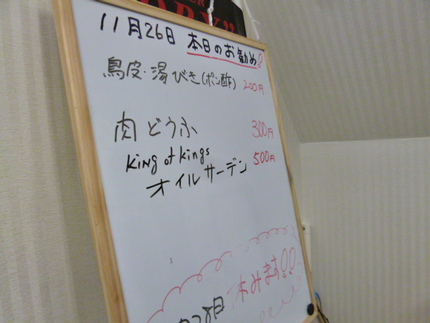 11月26日 本日のお勧め!!
鳥皮・湯びき(ポン酢) 200円
肉どうふ 300円
King of kings
オイルサーデン 500円
月28日 休みます!!